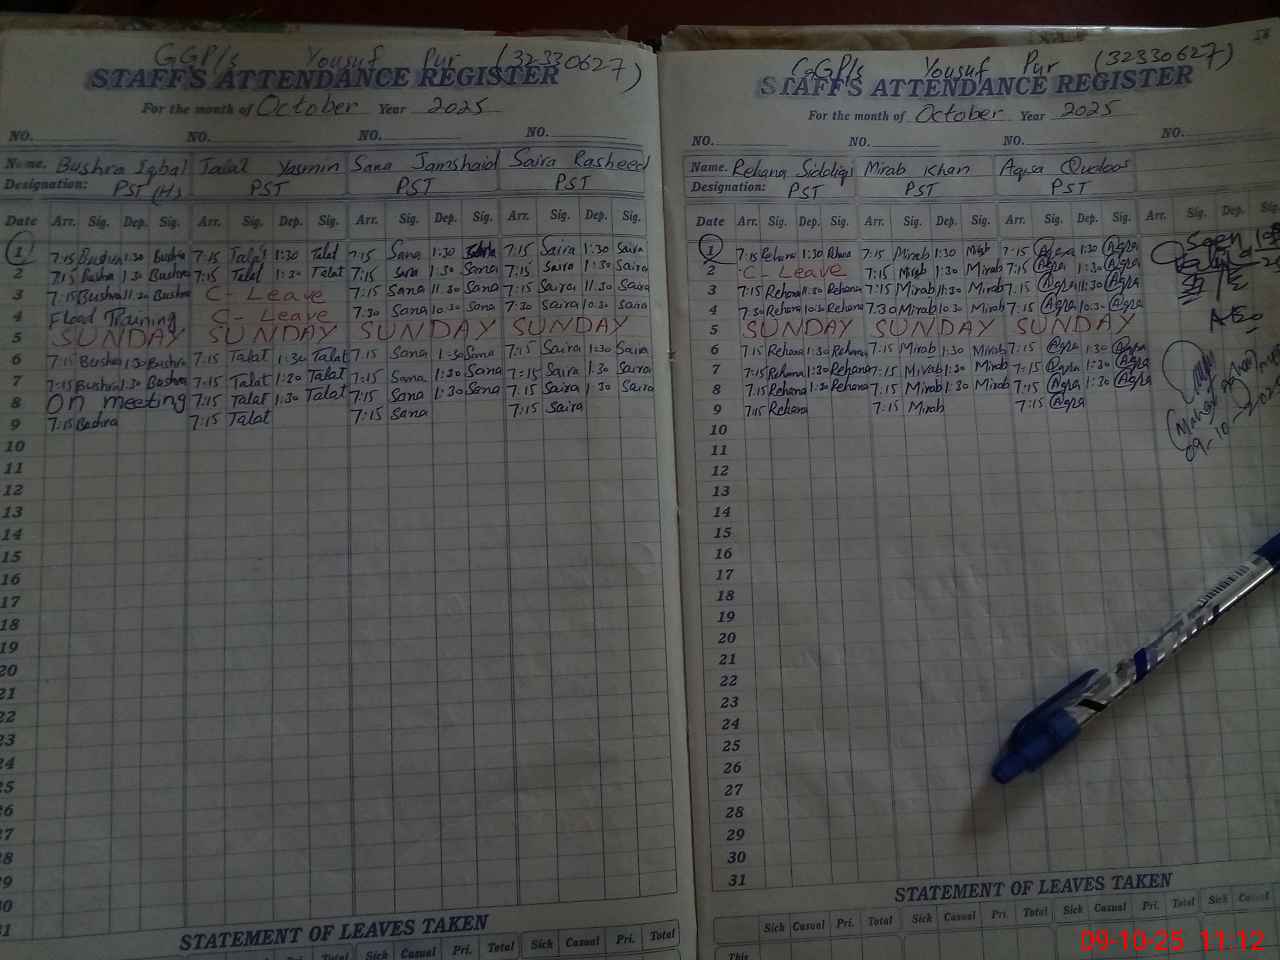 GGP/s Yousuf Pur (32330627)
STAFF'S ATTENDANCE REGISTER
For the month of October Year 2025
NO. NO. NO. NO.
Name. Bushra Iqbal Talat Yasmin Sana Jamshaid Saira Rasheed
Designation: PST (H) PST PST PST
Date Arr. Sig. Dep. Sig. Arr. Sig. Dep. Sig. Arr. Sig. Dep. Sig. Arr. Sig. Dep. Sig.
1 7:15 Bushra 1:30 Bushra 7:15 Talat 1:30 Talat 7:15 Sana 1:30 7:15 Saira 1:30 Saira
2 7:15 Bushra 1:30 Bushra 7:15 Talat 1:30 Talat 7:15 Sana 1:30 Sana 7:15 Saira 1:30 Saira
3 7:15 Bushra 11:30 Bushra C-Leave 7:15 Sana 11:30 Sana 7:15 Saira 11:30 Saira
4 Flood Training C-Leave 7:30 Sana 10:30 Sana 7:30 Saira 10:30 Saira
5 SUNDAY SUNDAY SUNDAY SUNDAY
6 7:15 Bushra 1:30 Bushra 7:15 Talat 1:30 Talat 7:15 Sana 1:30 Sana 7:15 Saira 1:30 Saira
7 7:15 Bushra 1:30 Bushra 7:15 Talat 1:30 Talat 7:15 Sana 1:30 Sana 7:15 Saira 1:30 Saira
8 On meeting 7:15 Talat 1:30 Talat 7:15 Sana 1:30 Sana 7:15 Saira 1:30 Saira
9 7:15 Bushra 7:15 Talat 7:15 Sana 7:15 Saira
10
11
12
13
14
15
16
17
18
19
20
21
22
23
24
25
26
27
28
29
30
31
STATEMENT OF LEAVES TAKEN
Casual Pri. Total Sick Casual Pri. Total Sick Casual Pri. Total
GGP/s Yousuf Pur (32330627)
STAFF'S ATTENDANCE REGISTER
For the month of October Year 2025
NO. NO. NO. NO.
Name. Rehana Siddiqi Mirab Khan Aqsa Quddos
Designation: PST PST PST
Date Arr. Sig. Dep. Sig. Arr. Sig. Dep. Sig. Arr. Sig. Dep. Sig. Arr. Sig. Dep. Sig.
1 7:15 Rehana 1:30 Rehana 7:15 Mirab 1:30 Mirab 7:15 Aqsa 1:30 Aqsa Seen
2 C-Leave 7:15 Mirab 1:30 Mirab 7:15 Aqsa 1:30 Aqsa
3 7:15 Rehana 11:30 Rehana 7:15 Mirab 11:30 Mirab 7:15 Aqsa 11:30 Aqsa
4 7:30 Rehana 10:30 Rehana 7:30 Mirab 10:30 Mirab 7:15 Aqsa 10:30 Aqsa AEO
5 SUNDAY SUNDAY SUNDAY
6 7:15 Rehana 1:30 Rehana 7:15 Mirab 1:30 Mirab 7:15 Aqsa 1:30 Aqsa
7 7:15 Rehana 1:30 Rehana 7:15 Mirab 1:30 Mirab 7:15 Aqsa 1:30 Aqsa
8 7:15 Rehana 1:30 Rehana 7:15 Mirab 1:30 Mirab 7:15 Aqsa 1:30 Aqsa
9 7:15 Rehana 7:15 Mirab 7:15 Aqsa
09-10-202
10
11
12
13
14
15
16
17
18
19
20
21
22
23
24
25
26
27
28
29
30
31
STATEMENT OF LEAVES TAKEN
Sick Casual Pri. Total Sick Casual Pri. Total Sick Casual Pri. Total Sick Casual
This
09-10-25 11:12